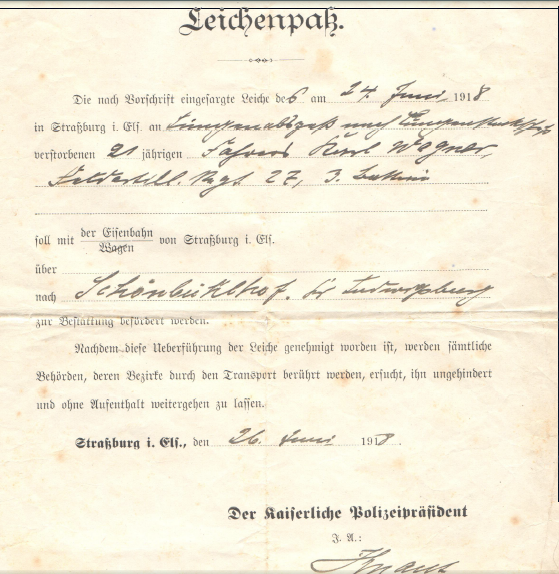 Leichenpaß.
Die nach Vorschrift eingesargte Leiche des am 24. Juni 1918
in Straßburg i. Els. an Lungenabszeß nach Lungensteckschuß
verstorbenen 21 jährigen Fahrers Karl Wagner,
Feldartill. Regt. 27, 3. Batterie
soll mit der Eisenbahn von Straßburg i. Els.
Wagen
über
nach Schönbühlhof, bei Ludwigsburg
zur Bestattung befördert werden.
Nachdem diese Ueberführung der Leiche genehmigt worden ist, werden sämtliche
Behörden, deren Bezirke durch den Transport berührt werden, ersucht, ihn ungehindert
und ohne Aufenthalt weitergehen zu lassen.
Straßburg i. Els., den 26. Juni 1918.
Der Kaiserliche Polizeipräsident
J. A.: